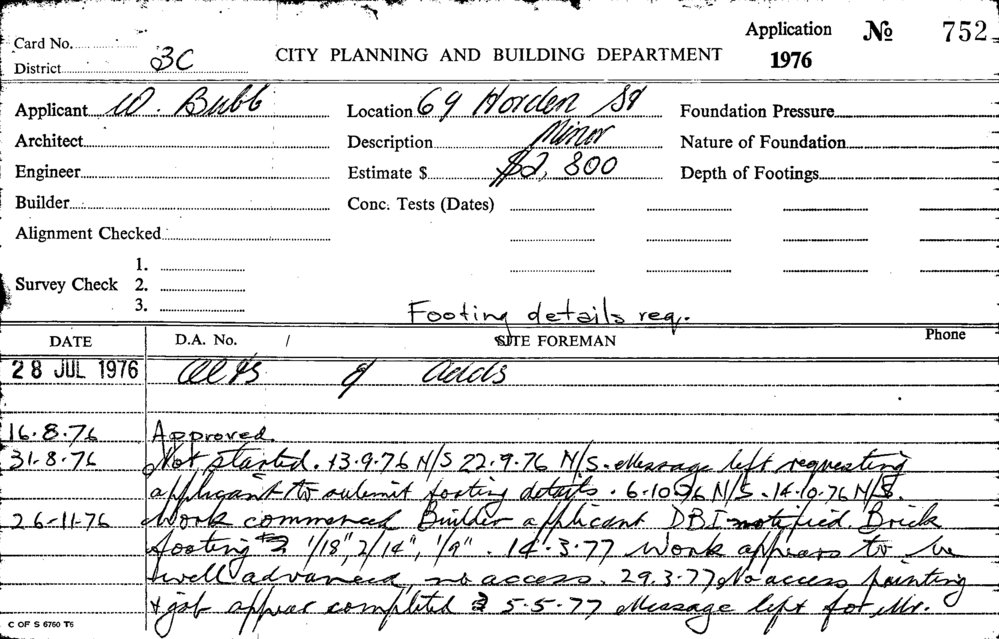 Card No. Application No 752
District 3C CITY PLANNING AND BUILDING DEPARTMENT 1976
Applicant W. Bubb Location 69 Horden St Foundation Pressure
Architect Description Minor Nature of Foundation
Engineer Estimate $ $2,800 Depth of Footings
Builder Conc. Tests (Dates)
Alignment Checked
1.
Survey Check 2.
3.
Footing details req.
DATE D.A. No. / SITE FOREMAN Phone
28 JUL 1976 Alts & adds
16.8.76 Approved.
31.8.76 Not started. 13.9.76 N/S 22.9.76 N/S. Message left requesting
applicant to submit footing details. 6.10.76 N/S. 14.10.76 N/S.
26-11-76 Work commenced Builder applicant DBI notified. Brick
footing 1/18", 2/14", 1/9". 14.3.77 Work appears to be
well advanced, no access. 29.3.77 No access painting
& job appear completed 5.5.77 Message left for Mr.
C OF S 6760 T6